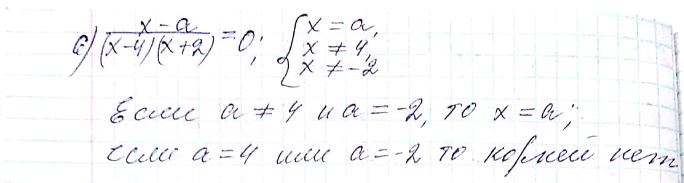 б) (x-a)/((x-4)(x+2)) = 0; { x = a,
x ≠ 4,
x ≠ -2
Если a ≠ 4 и a = -2, то x = a;
если a = 4 или a = -2 то корней нет